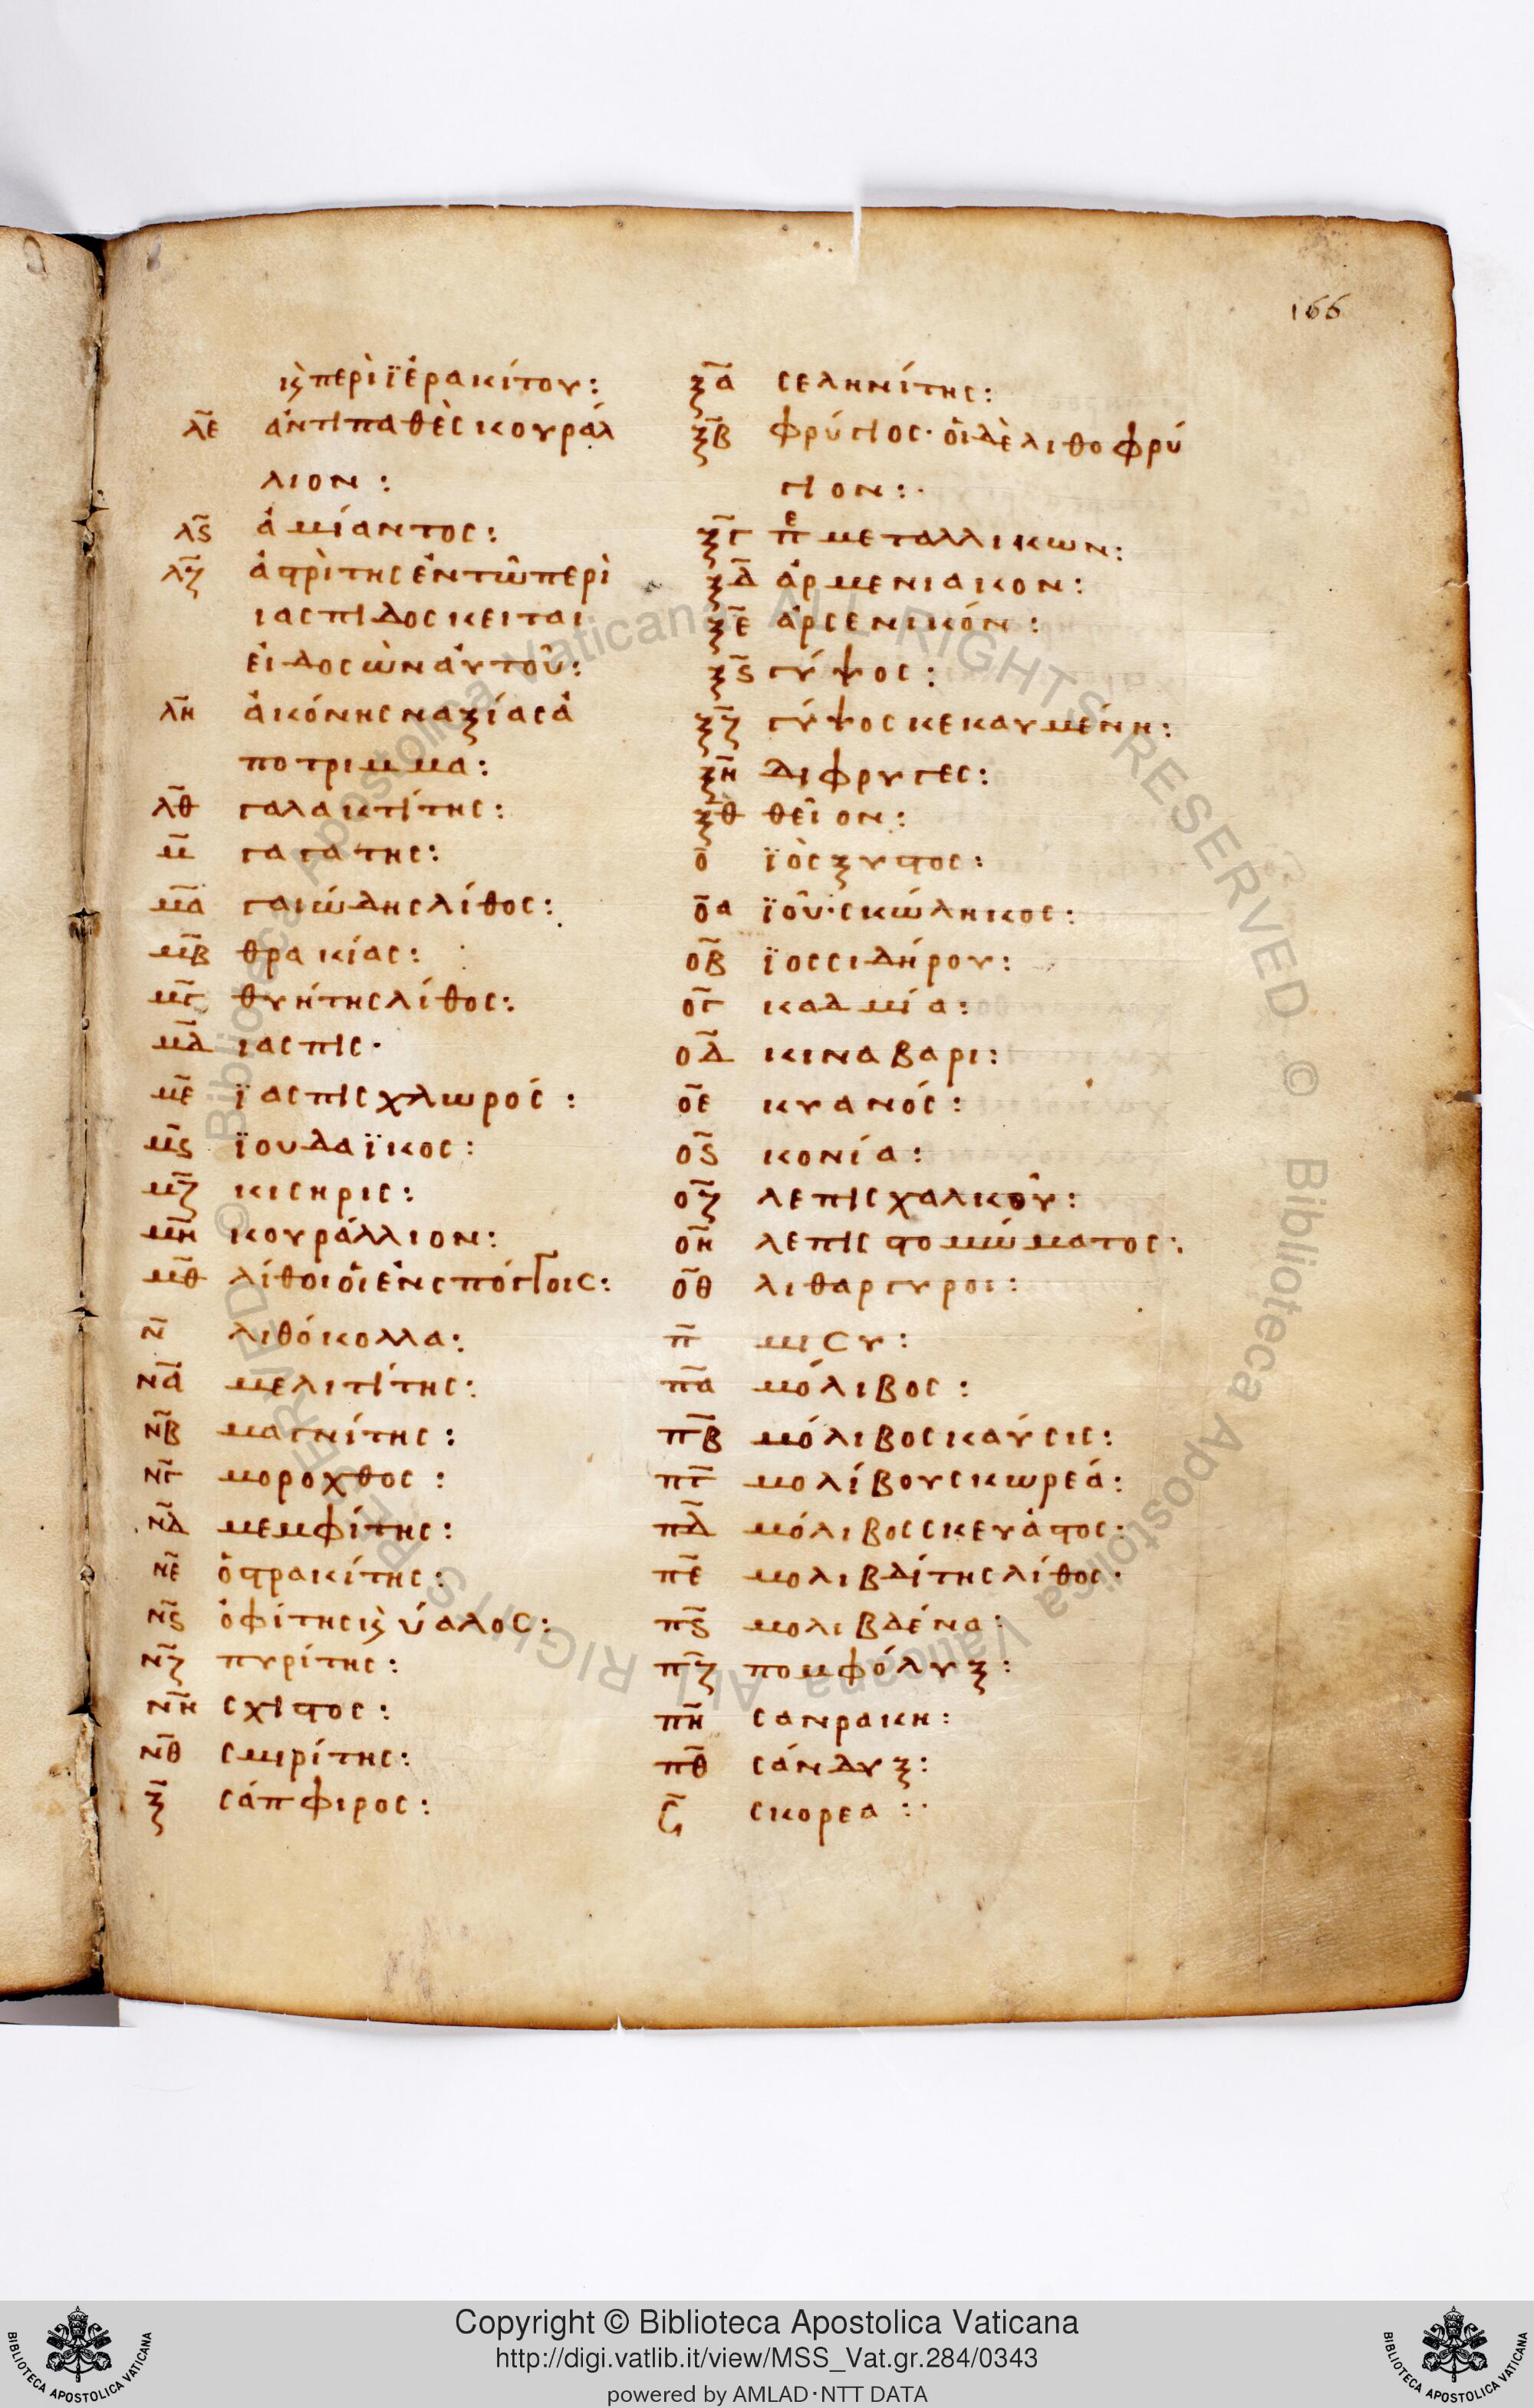 166
κὶ περὶ ϊἑρακίτου:
λε ἀντιπαθὲς κουράλ
λιον:
λς ἀμίαντος:
λζ ἀστρὶτης ἐν τῶ περὶ
ιασπιδος κειται
εἰδος ὼν ἀυτοῦ:
λη ἀκόνης ναξίας ἀ
ποτριμμα:
λθ γαλακτίτης:
μ γαγάτης:
μα γαιώδης λίθος:
μβ θρακίας:
μγ θυήτης λίθος:
μδ ιασπις·
με ϊασπις χλωρός:
μς ϊουδαϊκος:
μζ κισηρις:
μη κουράλλιον:
μθ λίθοι ὁι ἐν σπόγγοις:
ν λιθόκολλα:
να μελιτίτης:
νβ μαγνίτης:
νγ μοροχθος:
νδ μεμφίτης:
νε ὀστρακίτης:
νς ὀφίτης κὶ ὑαλος:
νζ πυρίτης:
νη σχιστος:
νθ σμιρίτης:
ξ σάπφιρος:
ξα σεληνίτης:
ξβ φρύγιος· ὁι δὲ λιθο φρύ
γιον:·
ξγ πε μεταλλικων:
ξδ ἀρμενιακον:
ξε ἀρσενικόν:
ξς γύψος:
ξζ γύψος κεκαυμένη:
ξη διφρυγες:
ξθ θεῖον:
ο ϊὸς ξυστος:
οα ϊοῦ· σκώληκος:
οβ ϊος σιδήρου:
ογ καδμία:
οδ κιναβαρι:
οε κυανός:
ος κονία:
οζ λεπις χαλκοῦ:
οη λεπις στομώματος:
οθ λιθαργυροι:
π μισυ:
πα μόλιβος:
πβ μόλιβος καύσις:
πγ μολίβου σκωρεά:
πδ μόλιβος σκευάστος:
πε μολιβδίτης λίθος·
πς μολιβδένα:
πζ πομφόλυξ:
πη σανρακη:
πθ σάνδυξ:
ϟ σκορεα:·
Copyright © Biblioteca Apostolica Vaticana
http://digi.vatlib.it/view/MSS_Vat.gr.284/0343
powered by AMLAD·NTT DATA
BIBLIOTECA APOSTOLICA VATICANA
BIBLIOTECA APOSTOLICA VATICANA
© Biblioteca Apostolica Vaticana ALL RIGHTS RESERVED © Biblioteca Apostolica Vaticana ALL RIGHTS RESERVED